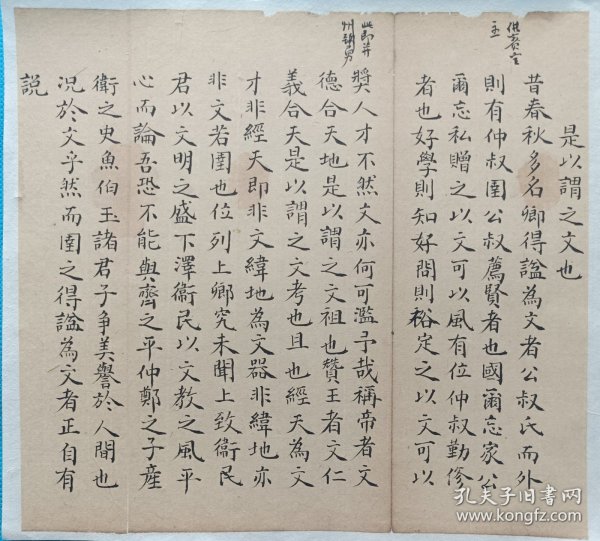 是以謂之文也
昔春秋多名卿得謚為文者公叔氏而外
則有仲叔圉公叔薦賢者也國爾忘家公
爾忘私贈之以文可以風有位仲叔勤修
者也好學則知好問則裕定之以文可以
獎人才不然文亦何可濫予哉稱帝者文
德合天地是以謂之文祖也贊王者文仁
義合天是以謂之文考也且也經天為文
才非經天即非文緯地為文器非緯地亦
非文若圉也位列上卿究未聞上致衞民
君以文明之盛下澤衞民以文教之風平
心而論吾恐不能與齊之平仲鄭之子產
衞之史魚伯玉諸君子爭美譽於人間也
況於文乎然而圉之得謚為文者正自有
説
孔夫子旧书网
www.kongfz.com